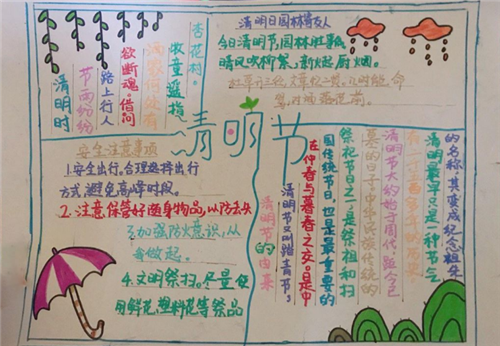 清明时
节雨纷纷
路上行人
欲断魂。借问
酒家何处有
牧童遥指
杏花村。
清明日园林寄友人
今日清明节,园林胜事偏
晴风吹柳絮,新火起厨烟。
杜草开三径,文章忆二贤。几时能命
驾,对酒落花前。
清明节
安全注意事项
1.安全出行,合理选择出行
方式,避免高峰时段。
2.注意保管好随身物品,以防丢失
3.加强防火意识,从
会做起。
4.文明祭扫。尽量使
用鲜花,塑料花等祭品
清明节的由来
清明节又叫踏青节,
在仲春与暮春之交。是中
国传统节日,也是最重要的
祭祀节日之一,是祭祖和扫
墓的日子,中华民族传统的
清明节大约始于周代,距今已
有二千五百多年的历史
清明最早只是一种节气
的名称,其变成纪念祖先